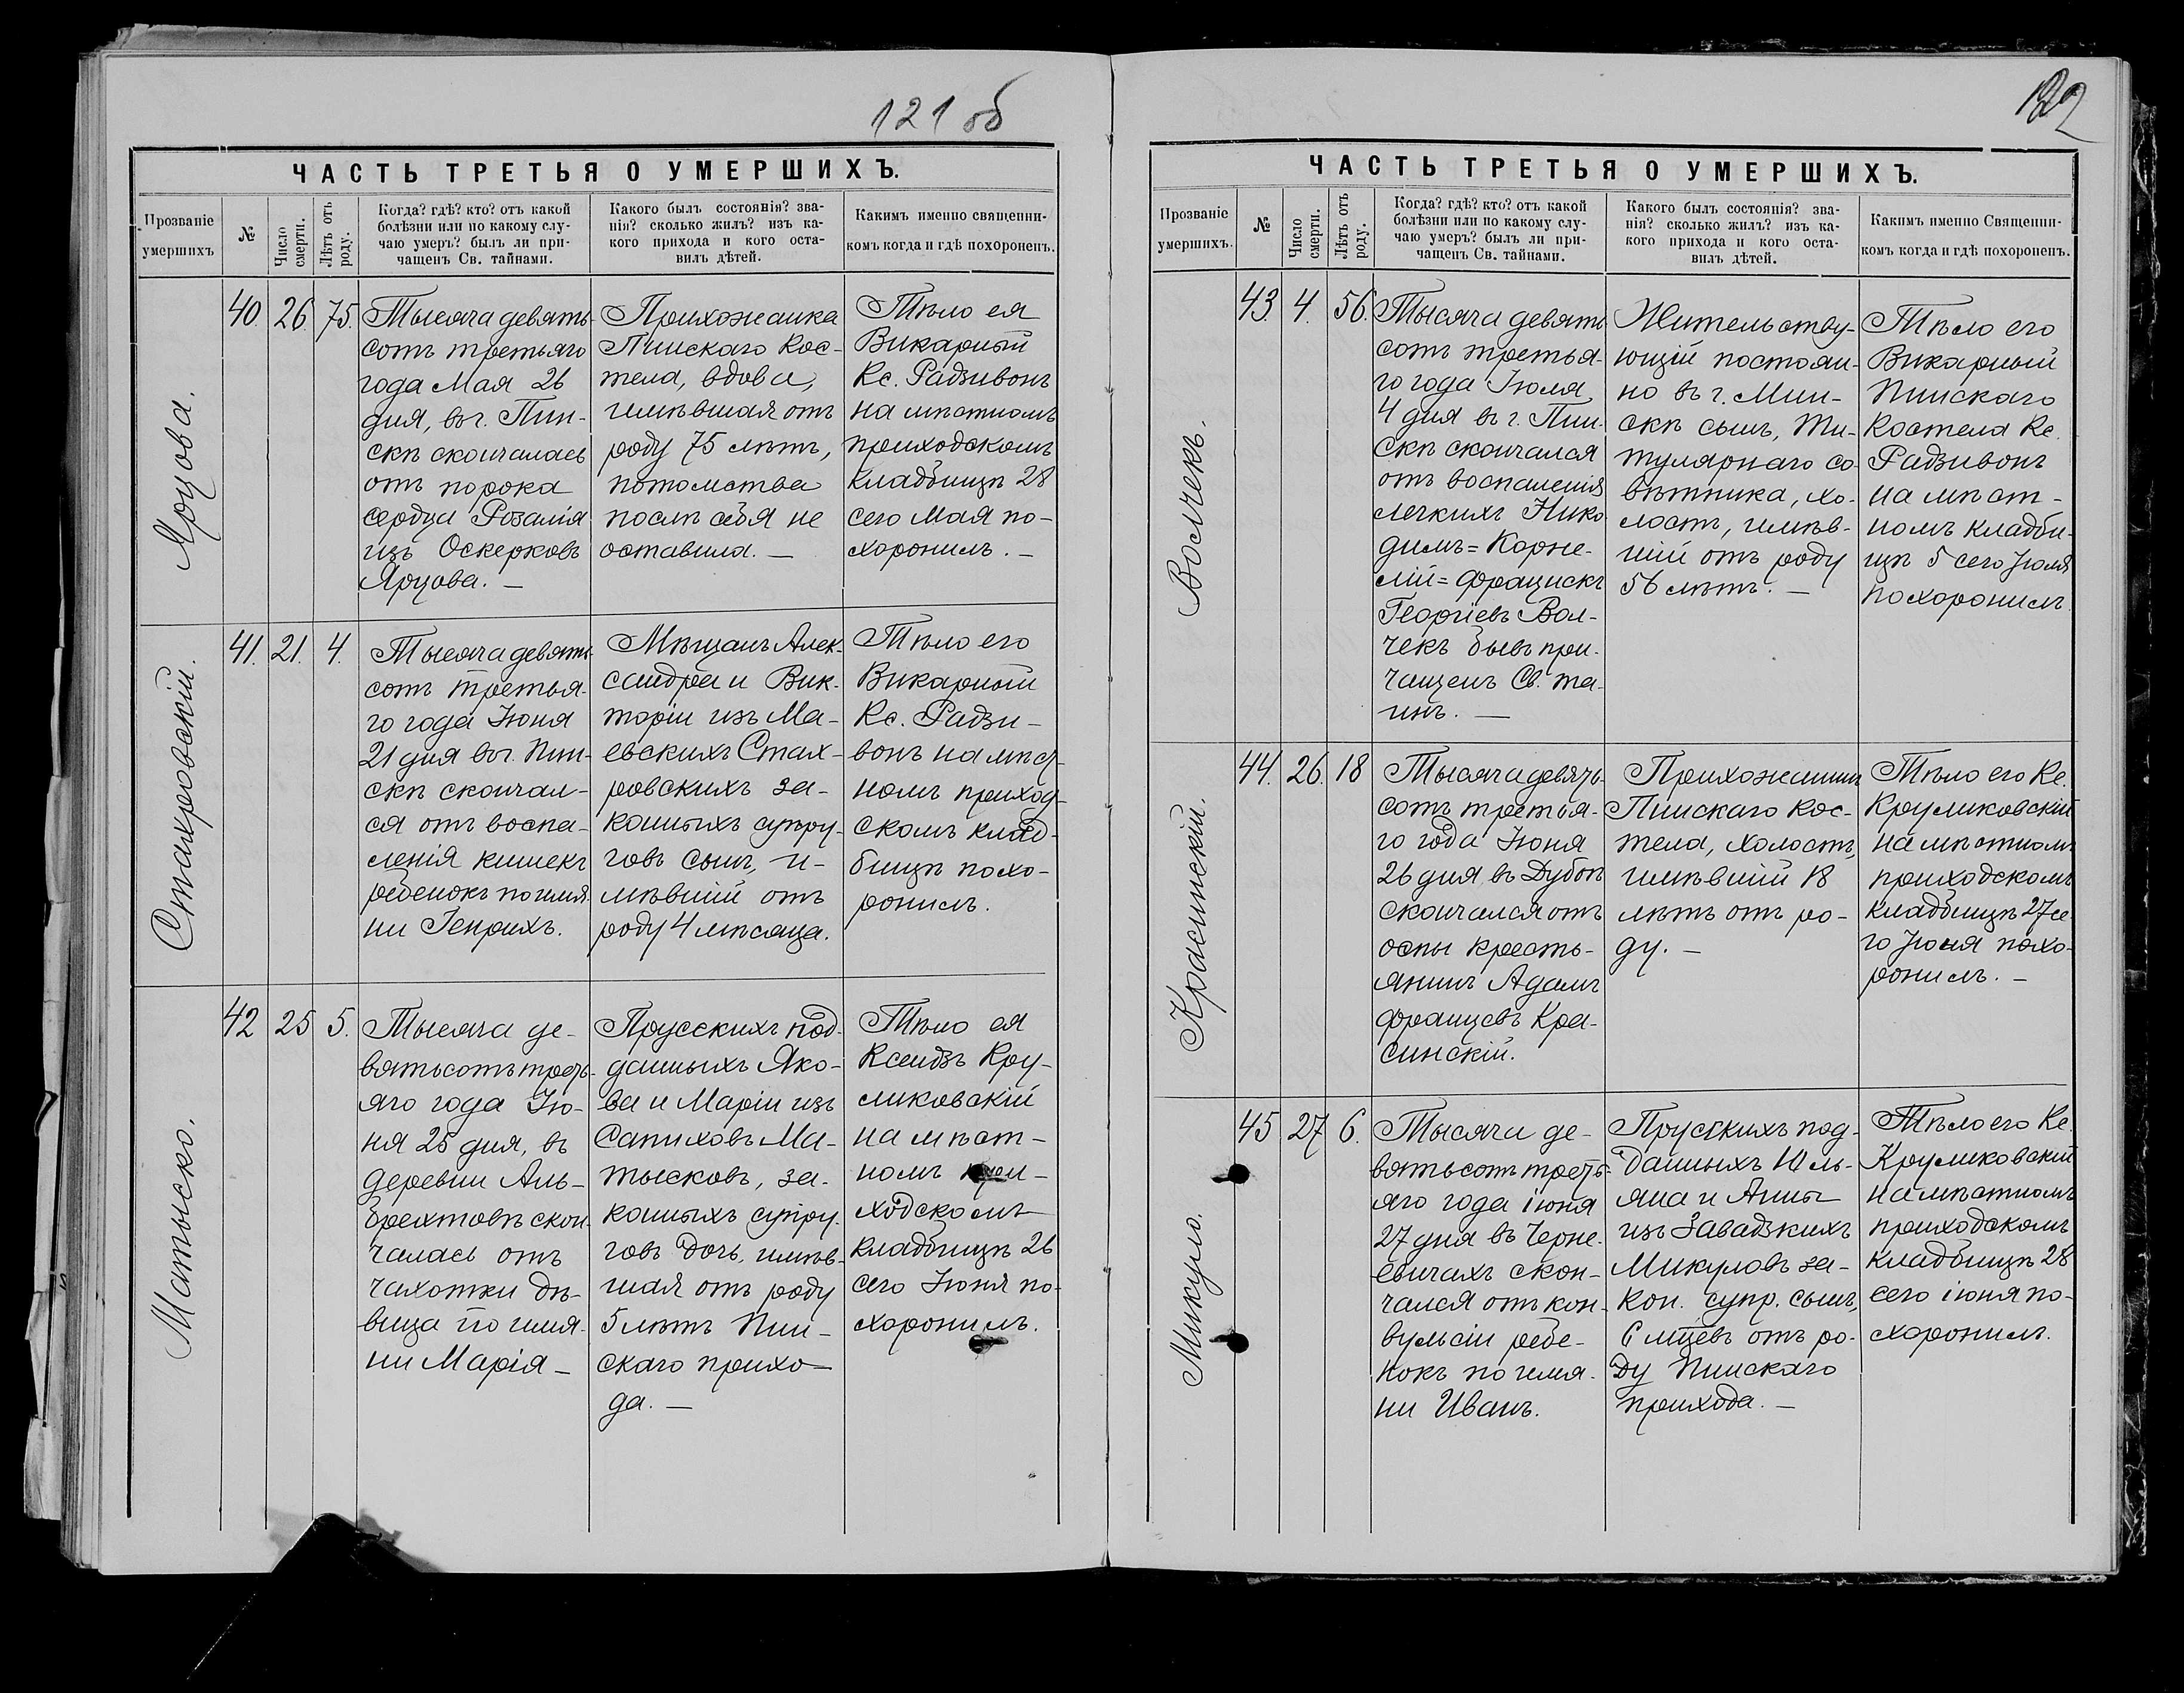 121 об
ЧАСТЬ ТРЕТЬЯ О УМЕРШИХЪ.
Прозваніе умершихъ
№
Число смерти.
Лѣтъ отъ роду.
Когда? гдѣ? кто? отъ какой
болѣзни или по какому слу-
чаю умеръ? былъ ли при-
чащенъ Св. тайнами.
Какого былъ состоянія? зва-
нія? сколько жилъ? изъ ка-
кого прихода и кого оста-
вилъ дѣтей.
Какимъ именно священни-
комъ когда и гдѣ похороненъ.
Ярцова.
40.
26.
75.
Тысяча девять-
сотъ третьяго
года Мая 26
дня, въ г. Пин-
скѣ скончалась
отъ порока
сердца Розалія
изъ Оскерковъ
Ярцова. —
Прихожанка
Пинскаго Кос-
тела, вдова,
имѣвшая отъ
роду 75 лѣтъ,
потомства
послѣ себя не
оставила. —
Тѣло ея
Викарный
Кс. Радзивонъ
на мѣстномъ
приходскомъ
кладбищѣ 28
сего Мая по-
хоронилъ. —
Стахровскій.
41.
21.
4.
Тысяча девять-
сотъ третья-
го года Іюня
21 дня въ г. Пин-
скѣ скончал-
ся отъ воспа-
ленія кишекъ
ребенокъ по име-
ни Генрихъ.
Мѣщанъ Алек-
сандра и Вик-
торіи изъ Ма-
евскихъ Стах-
ровскихъ за-
конныхъ супру-
говъ сынъ, и-
мѣвшій отъ
роду 4 мѣсяца.
Тѣло его
Викарный
Кс. Радзи-
вонъ на мѣст-
номъ приход-
скомъ клад-
бищѣ похо-
ронилъ.
Матыско.
42
25
5.
Тысяча де-
вятьсотъ треть-
яго года Ію-
ня 25 дня, въ
деревни Аль-
брехтовѣ скон-
чалась отъ
чахотки дѣ-
вица по име-
ни Марія —
Прусскихъ под-
данныхъ Яко-
ва и Маріи изъ
Сапиховъ Ма-
тысковъ, за-
конныхъ супру-
говъ дочь, имѣв-
шая отъ роду
5 лѣтъ Пин-
скаго прихо-
да. —
Тѣло ея
Ксендзъ Кру-
ликовскій
на мѣст-
номъ при-
ходскомъ
кладбищѣ 26
сего Іюня по-
хоронилъ.
122
ЧАСТЬ ТРЕТЬЯ О УМЕРШИХЪ.
Прозваніе умершихъ.
№
Число смерти.
Лѣтъ отъ роду.
Когда? гдѣ? кто? отъ какой
болѣзни или по какому слу-
чаю умеръ? былъ ли при-
чащенъ Св. тайнами.
Какого былъ состоянія? зва-
нія? сколько жилъ? изъ ка-
кого прихода и кого оста-
вилъ дѣтей.
Какимъ именно Священни-
комъ когда и гдѣ похороненъ.
Волчекъ.
43.
4.
56.
Тысяча девять
сотъ третья-
го года Іюля
4 дня въ г. Пин-
скѣ скончался
отъ воспаленія
легкихъ Нико-
димъ=Корне-
лій=Францискъ
Георгіевъ Вол-
чекъ бывъ при-
чащенъ Св. та-
инъ. —
Жительству-
ющій постоян-
но въ г. Мин-
скѣ сынъ, Ти-
тулярнаго со-
вѣтника, хо-
лостъ, имѣв-
шій отъ роду
56 лѣтъ. —
Тѣло его
Викарный
Пинскаго
Костела Кс.
Радзивонъ
на мѣст-
номъ кладби-
щѣ 5 сего Іюля
похоронилъ
Красинскій.
44.
26.
18
Тысяча девять-
сотъ третья-
го года Іюня
26 дня въ Дубоѣ
скончался отъ
оспы кресть-
янинъ Адамъ
Францевъ Кра-
синскій.
Прихожанинъ
Пинскаго Кос-
тела, холостъ,
имѣвшій 18
лѣтъ отъ ро-
ду. —
Тѣло его Кс.
Круликовскій
на мѣстномъ
приходскомъ
кладбищѣ 27 се-
го Іюня похо-
ронилъ. —
Микуло.
45
27
6.
Тысяча де-
вятьсотъ треть-
яго года іюня
27 дня въ Черне-
евичахъ скон-
чался отъ кон-
вульсіи ребе-
нокъ по име-
ни Иванъ.
Прусскихъ под-
данныхъ Юль-
яна и Анны
изъ Завадзкихъ
Микуловъ за-
кон. супр. сынъ,
6 мцевъ отъ ро-
ду Пинскаго
прихода. —
Тѣло его Кс.
Круликовскій
на мѣстномъ
приходскомъ
кладбищѣ 28
сего іюня по-
хоронилъ.